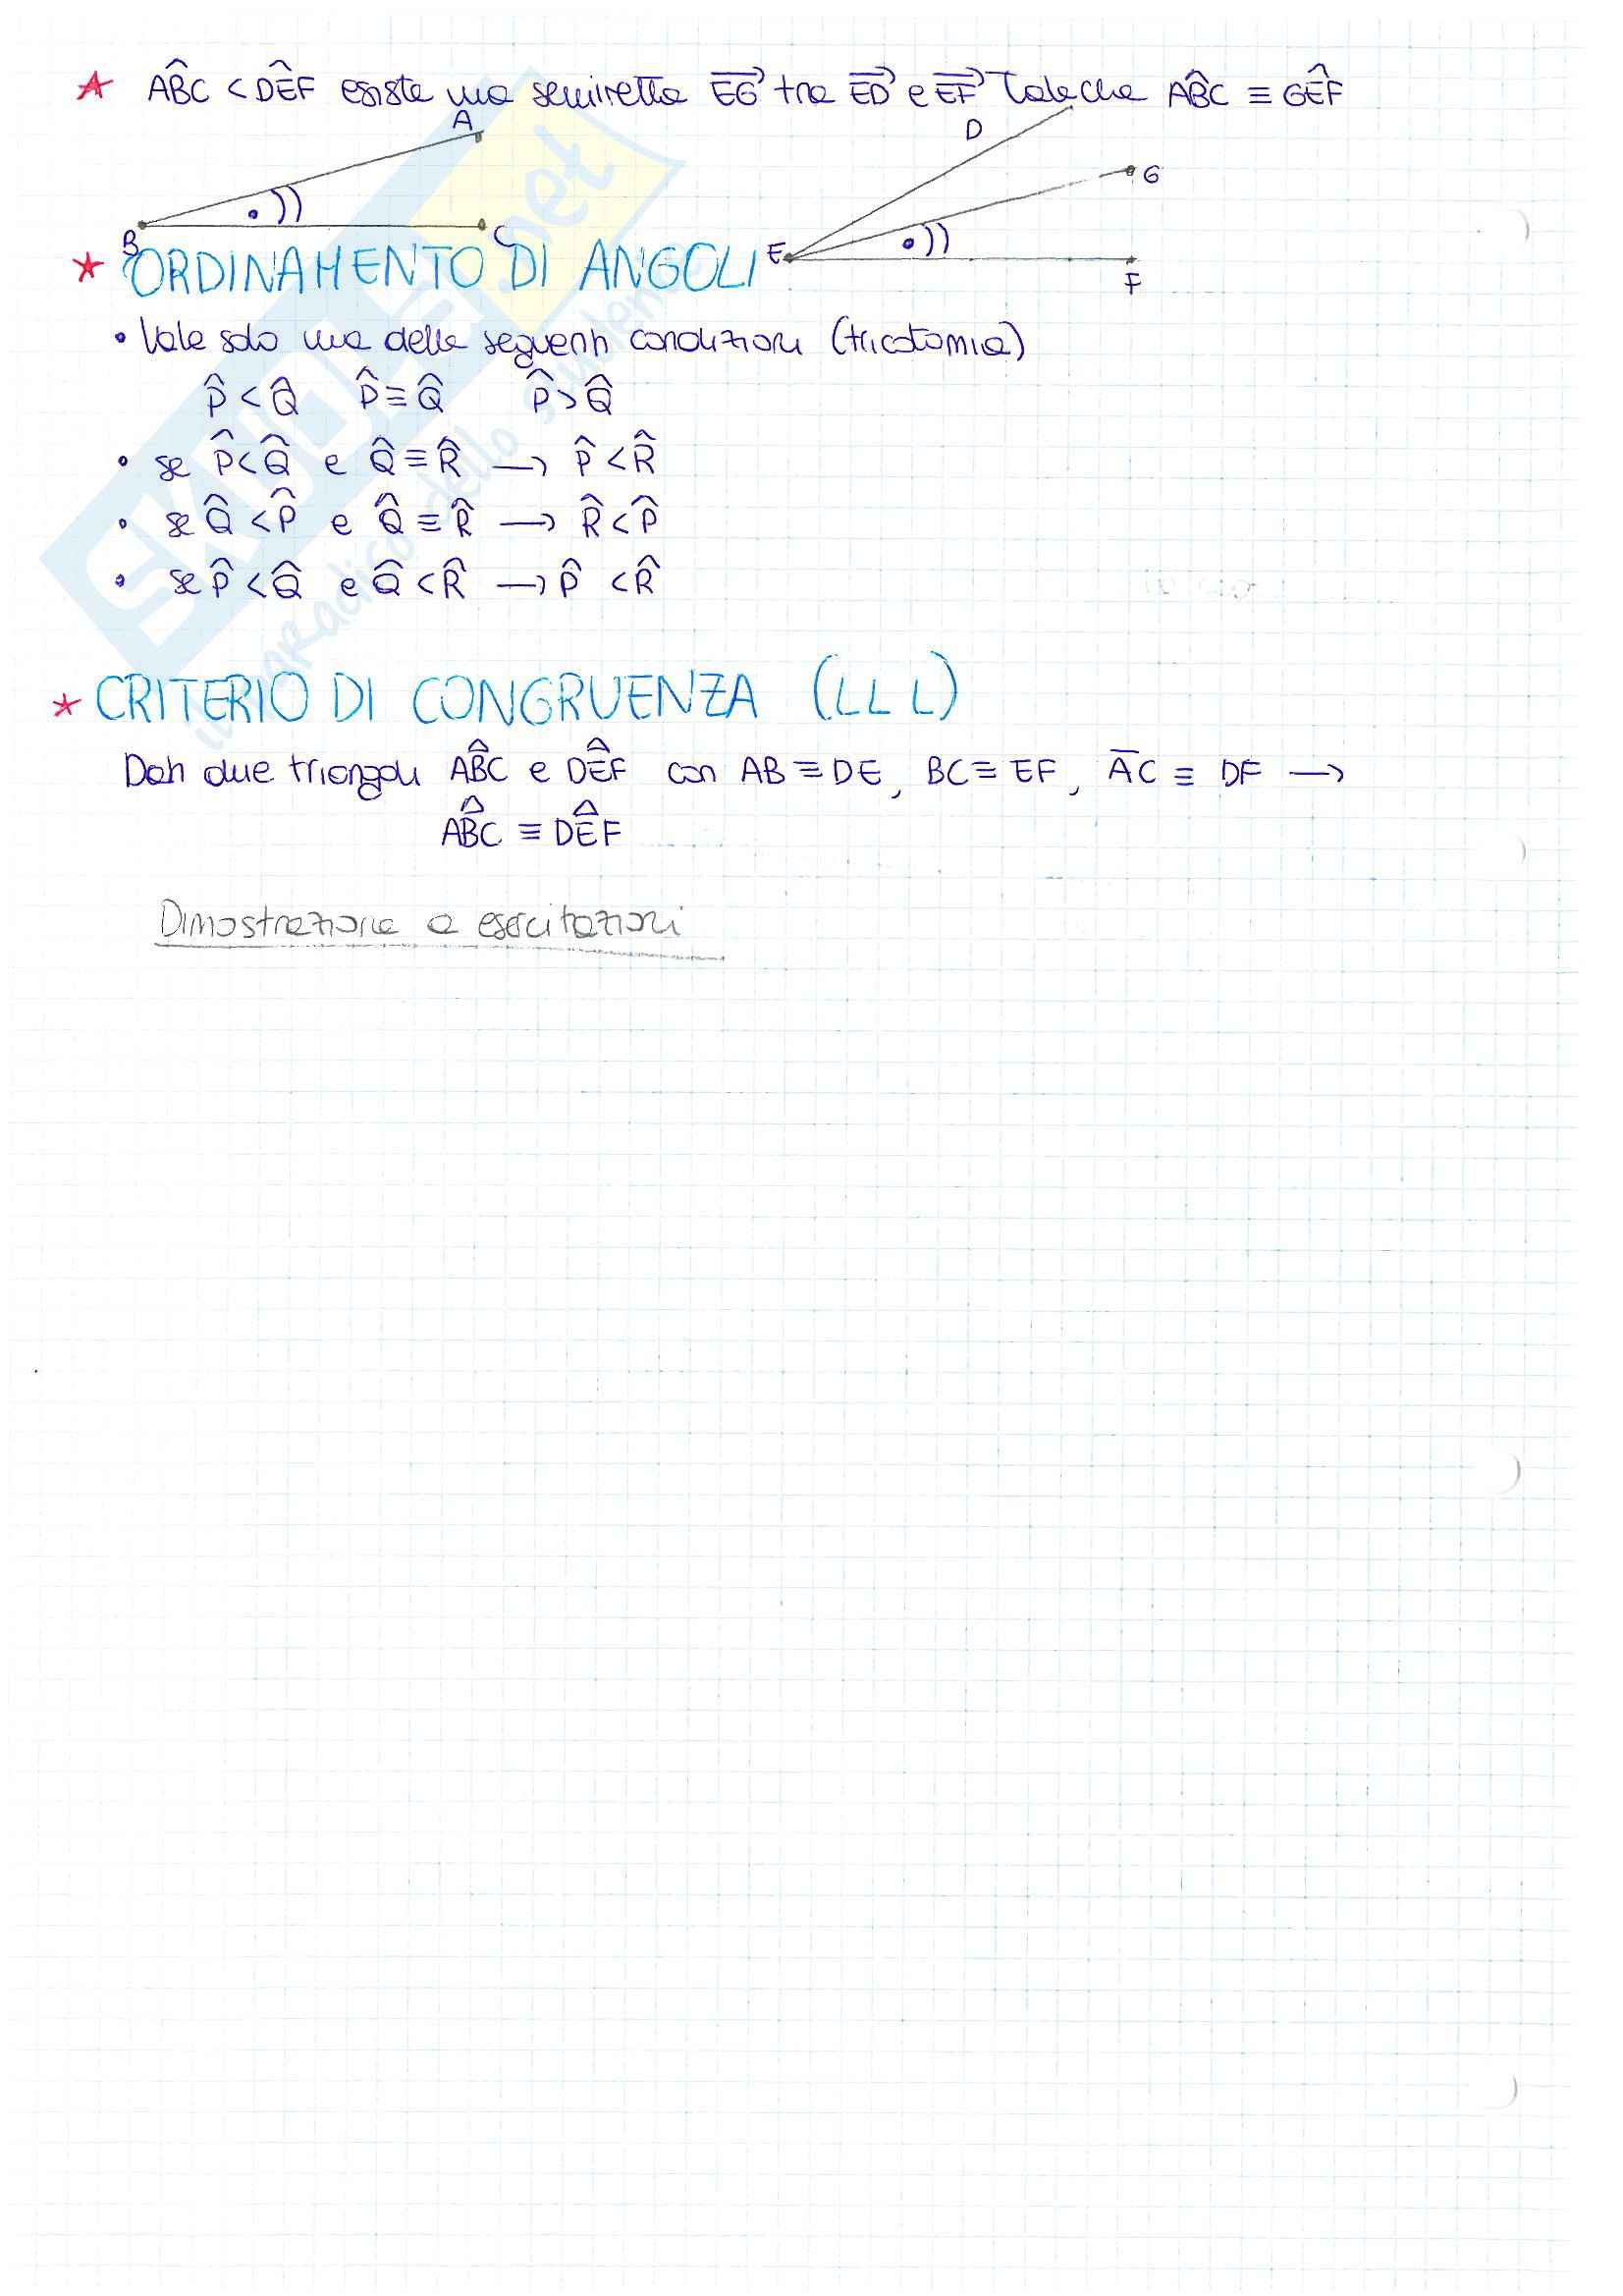 ★ AB̂C < DÊF esiste una semiretta EG⃗ tra ED⃗ e EF⃗ tale che AB̂C ≡ GÊF
A
D
G
B
C
E
F
★ ORDINAMENTO DI ANGOLI
• Vale solo una delle seguenti condizioni (tricotomia)
P̂ < Q̂ P̂ ≡ Q̂ P̂ > Q̂
• se P̂ < Q̂ e Q̂ ≡ R̂ → P̂ < R̂
• se Q̂ < P̂ e Q̂ ≡ R̂ → R̂ < P̂
• se P̂ < Q̂ e Q̂ < R̂ → P̂ < R̂
★ CRITERIO DI CONGRUENZA (LLL)
Dati due triangoli AB̂C e DÊF con AB ≡ DE, BC ≡ EF, A̅C ≡ DF →
AB̂C ≡ DÊF
Dimostrazione a esercitazioni
SKUOLA.net
il paradiso dello studente